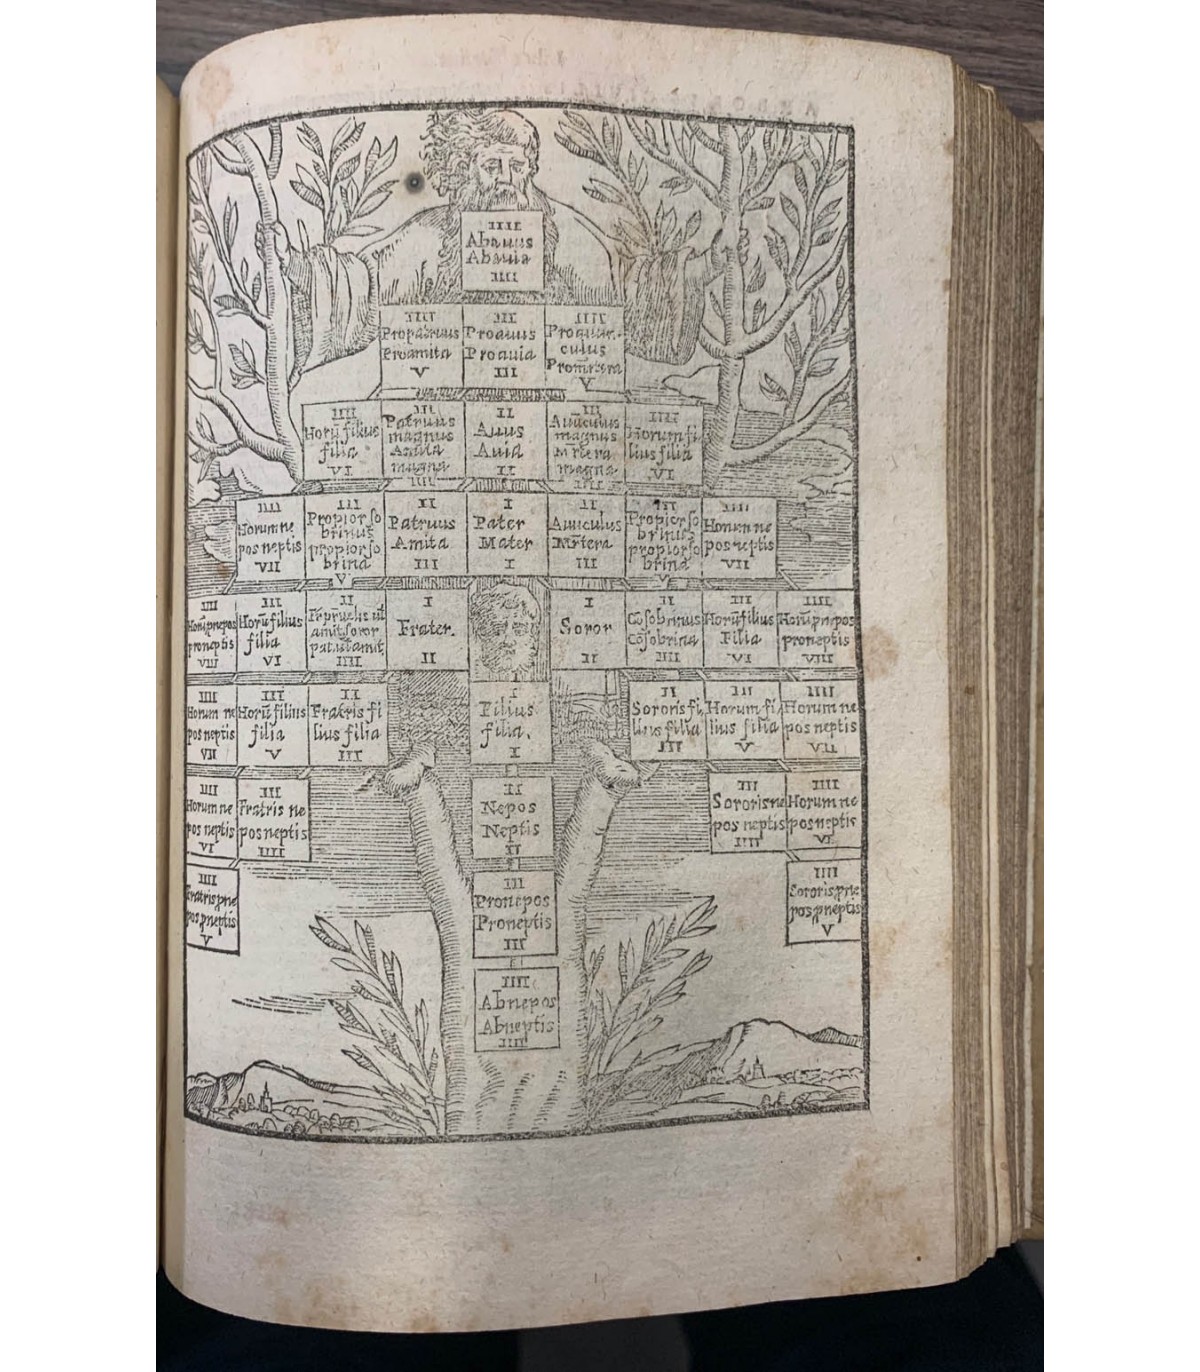 IIII
Abauus
Abauia
IIII
IIII
Propatruus
Proamita
V
III
Proauus
Proauia
III
IIII
Proauun-
culus
Promr̃tera
V
IIII
Horũ filius
filia
VI
III
Patruus
magnus
Amita
magna
IIII
II
Auus
Auia
II
III
Auũculus
magnus
Mr̃tera
magna
IIII
IIII
Horum fi
lius filia
VI
IIII
Horum ne
pos neptis
VII
III
Propior so
brinus
propior so
brina
V
II
Patruus
Amita
III
I
Pater
Mater
I
II
Auuculus
Mr̃tera
III
III
Propior so
brinus
propior so
brina
V
IIII
Horum ne
pos neptis
VII
IIII
Horũ pnepos
proneptis
VIII
III
Horũ filius
filia
VI
II
amit. soror
IIII
I
Frater.
II
I
Soror
II
II
Cõsobrinus
Cõsobrina
IIII
III
Horũ filius
Filia
VI
IIII
Horũ pnepos
proneptis
VIII
IIII
Horum ne
pos neptis
VII
III
Horũ filius
filia
V
II
Fratris fi
lius filia
III
I
Filius
filia.
I
II
Sororis fi
lius filia
III
III
Horum fi
lius filia
V
IIII
Horum ne
pos neptis
VII
IIII
Horum ne
pos neptis
VI
III
Fratris ne
pos neptis
IIII
II
Nepos
Neptis
II
III
Sororis ne
pos neptis
IIII
IIII
Horum ne
pos neptis
VI
IIII
Fratris pne
pos pneptis
V
III
Pronepos
Proneptis
III
IIII
Sororis pne
pos pneptis
V
IIII
Abnepos
Abneptis
IIII